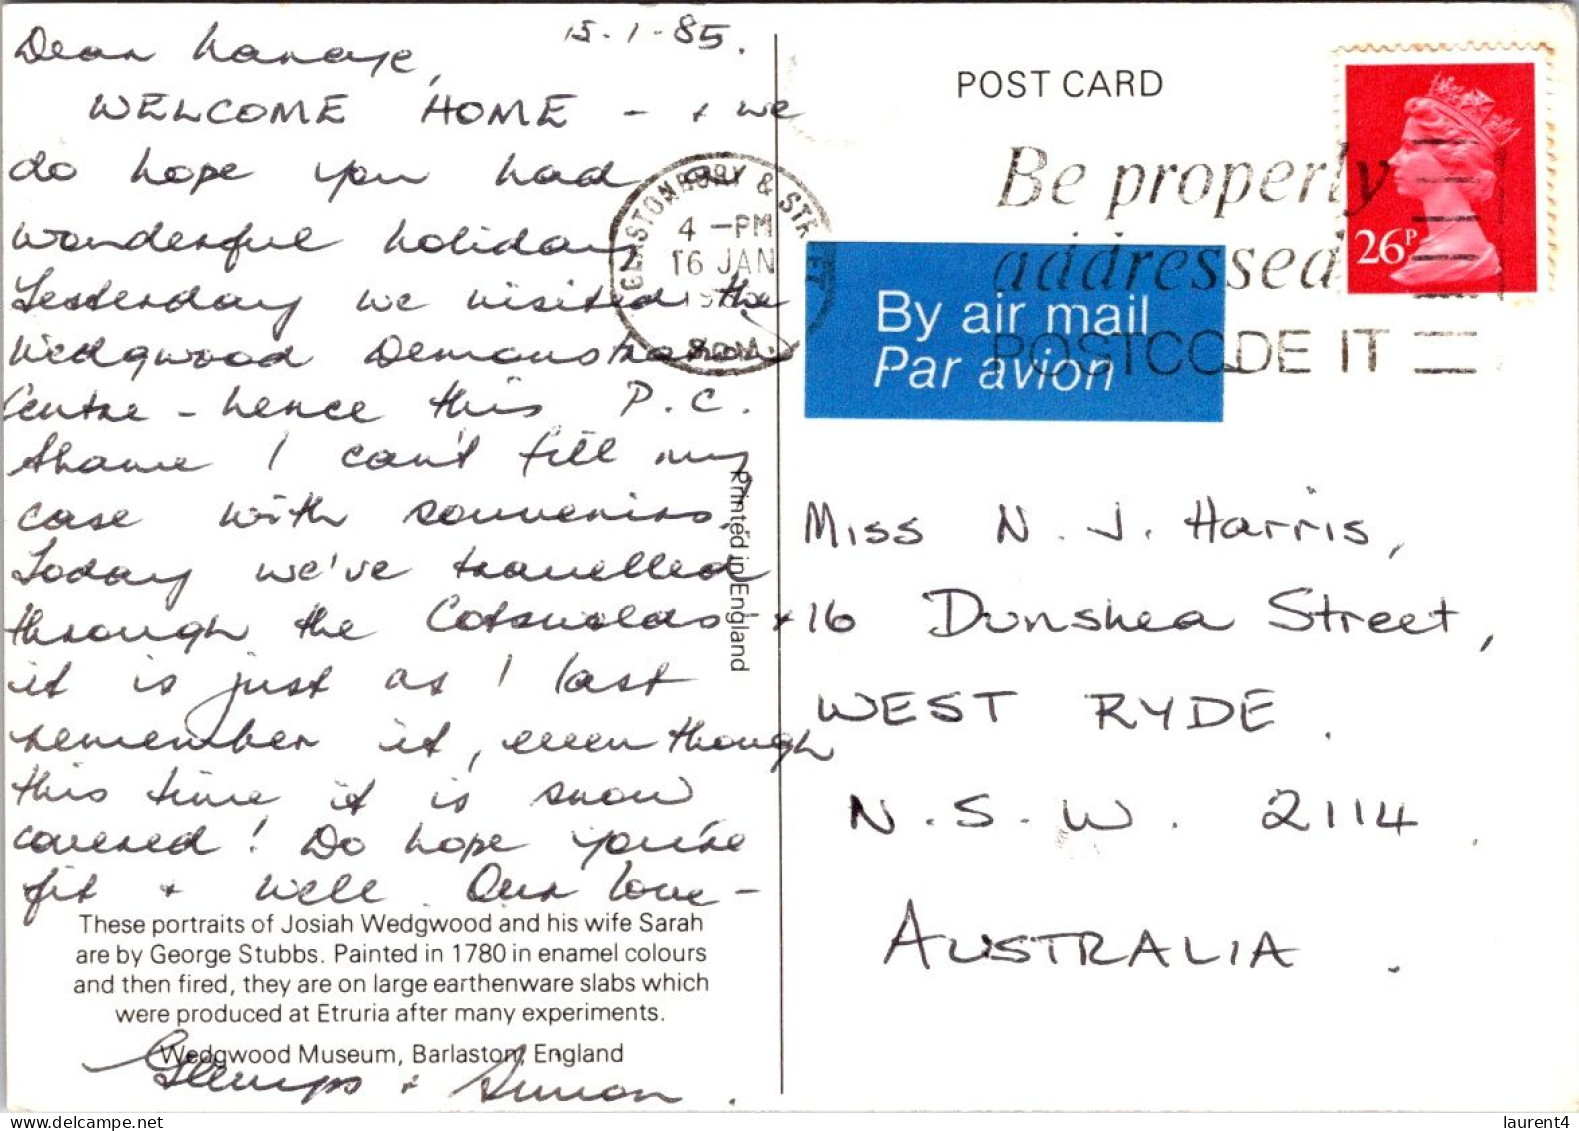 15-1-85.
Dear
WELCOME HOME - + we
do hope you had a
wonderful holiday.
Yesterday we visited the
Wedgwood Demonstration
Centre - hence this P.C.
Shame I can't fill my
case with souvenirs.
Today we've travelled
through the Cotswolds - +
it is just as I last
remember it, even though
this time it is snow
covered! Do hope you're
fit + well. Our love -
These portraits of Josiah Wedgwood and his wife Sarah
are by George Stubbs. Painted in 1780 in enamel colours
and then fired, they are on large earthenware slabs which
were produced at Etruria after many experiments.
Wedgwood Museum, Barlaston, England
+ Simon.
Printed in England
POST CARD
GLASTONBURY & STREET
4 -PM
16 JAN
19
SOM.
Be properly
addressed
POSTCODE IT
26P
By air mail
Par avion
Miss N. J. Harris,
16 Dunshea Street,
WEST RYDE.
N.S.W. 2114.
AUSTRALIA.
laurent4